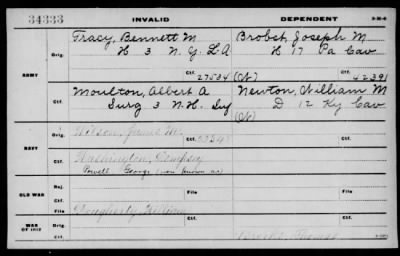 34333 INVALID DEPENDENT
ARMY
Orig.
Tracy, Bennett M
H 3 N.Y. L A
27534
Brobst, Joseph M
H 17 Pa Cav
(N) 42391
Ctf.
Moulton, Albert A
Surg 3 N.H. Inf
Newton, William M
D 12 Ky Cav
(N)
NAVY
Orig.
Wilson, James M.
Ctf.
Washington, Dempsey
Powell, George (now known as)
OLD WAR
Rej.
File
File
Ctf.
Daugherty, William
WAR OF 1812
Orig.
Ctf.
Ctf.
Brooks, Thomas